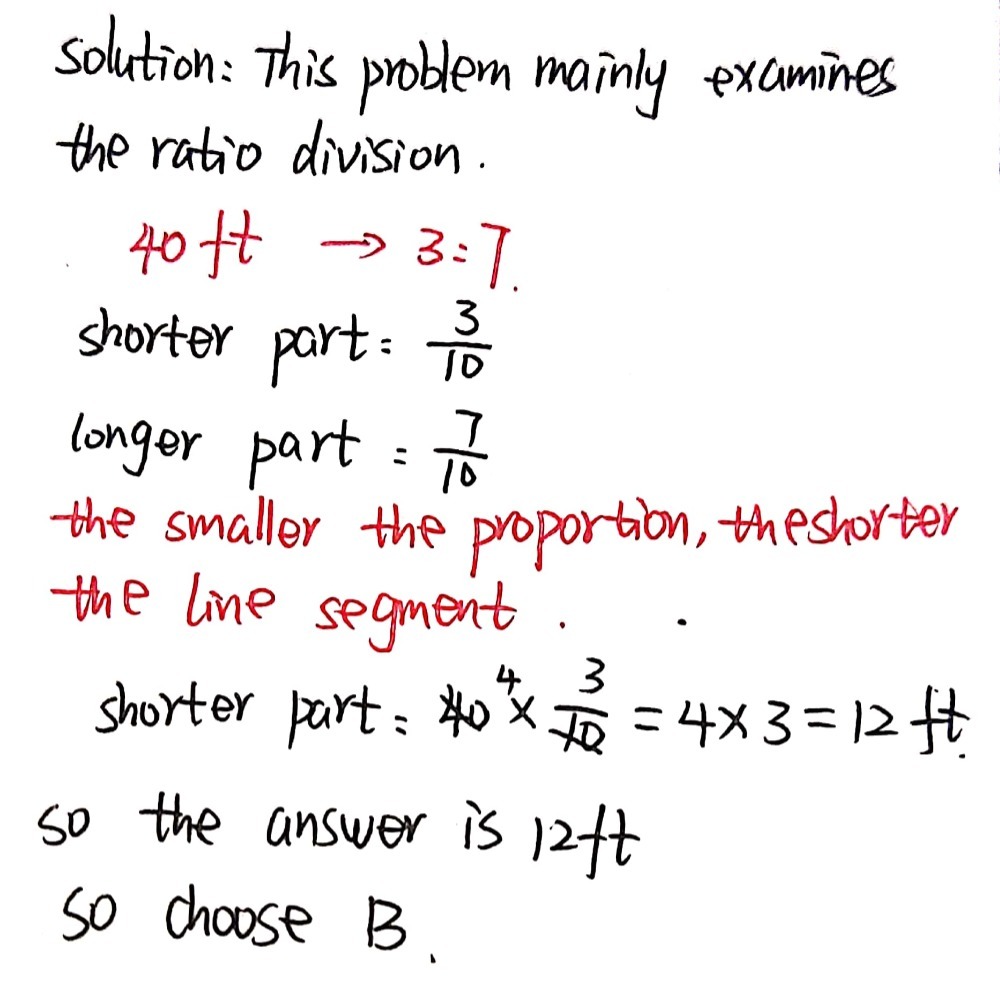 solution: This problem mainly examines
the ratio division.
40 ft → 3:7.
shorter part: 3/10
longer part: 7/10
the smaller the proportion, the shorter
the line segment.
shorter part: 40 4 × 3/10 = 4×3 = 12 ft.
so the answer is 12ft
so choose B.